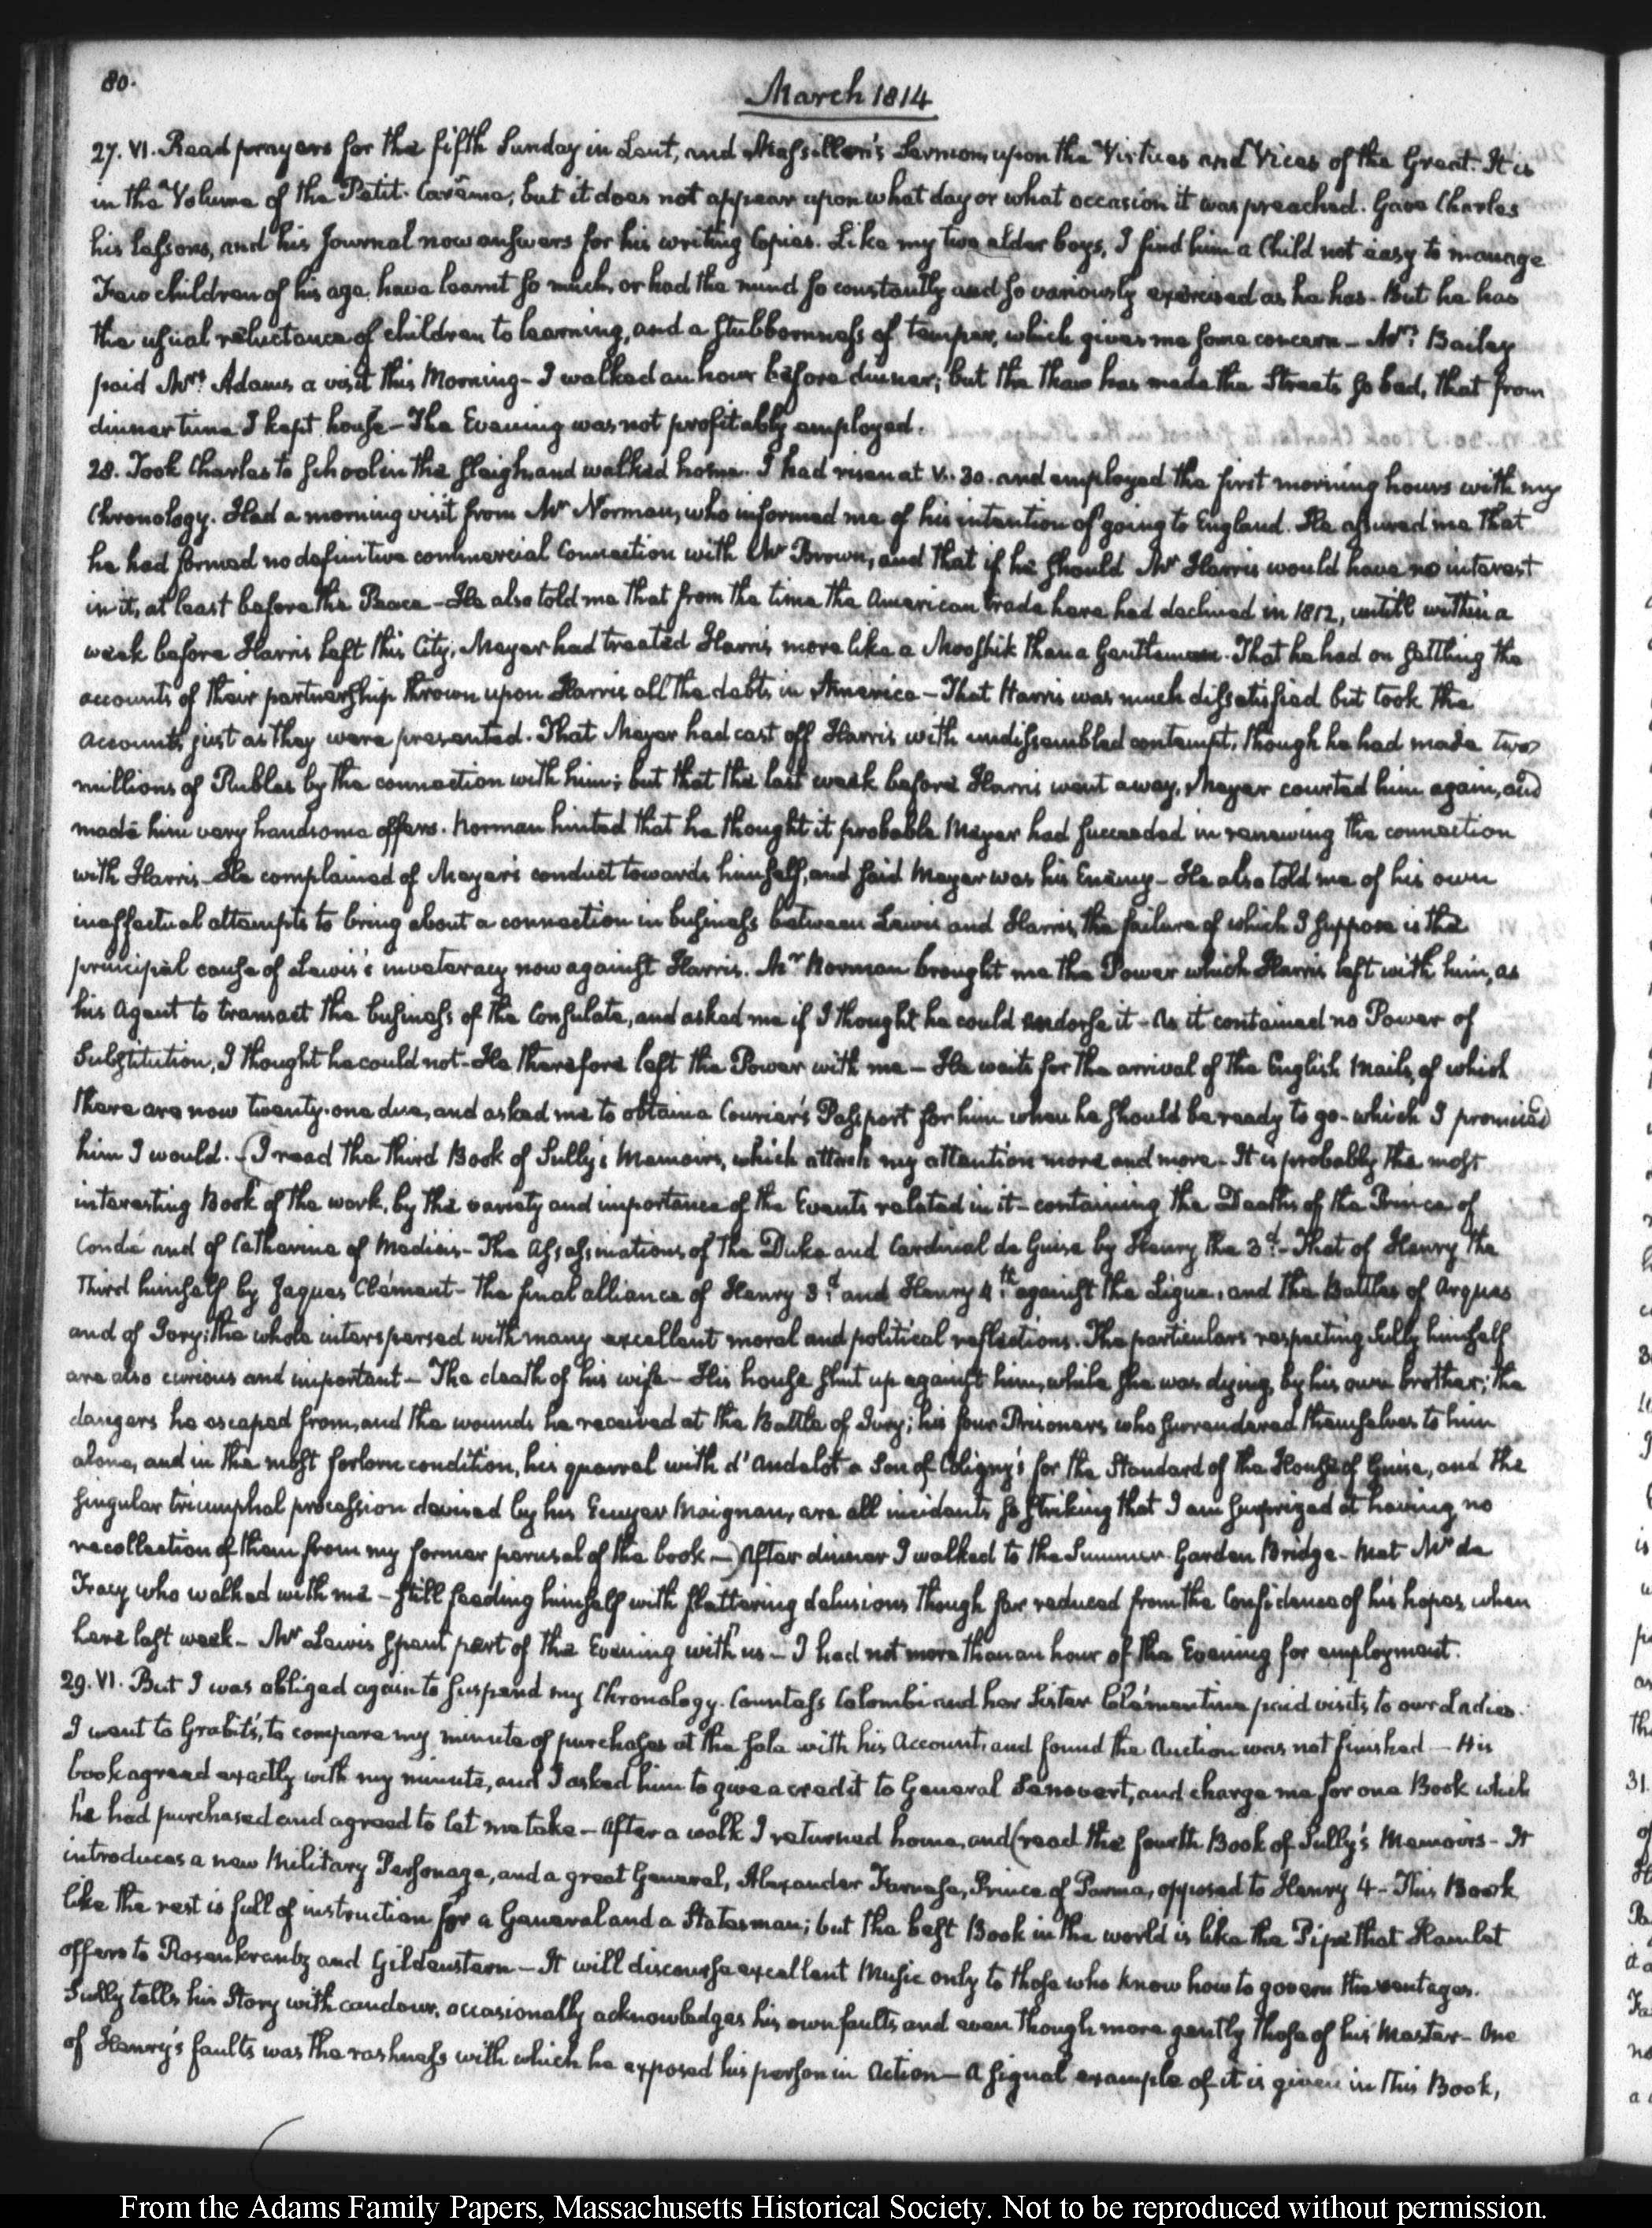 80.
March 1814
27. VI. Read prayers for the fifth Sunday in Lent, and Massillon's Sermon, upon the Virtues and Vices of the Great. It is
in the Volume of the Petit-Carême, but it does not appear upon what day or what occasion it was preached. Gave Charles
his lessons, and his Journal now answers for his writing Copies. Like my two elder boys, I find him a Child not easy to manage
Few children of his age, have learnt so much, or had the mind so constantly and so variously exercised as he has. But he has
the usual reluctance of children to learning, and a stubbornness of temper, which gives me some concern — Mrs. Bailey
paid Mrs Adams a visit this Morning — I walked an hour before dinner; but the thaw has made the Streets so bad, that from
dinner time I kept house — The Evening was not profitably employed.
28. Took Charles to School in the sleigh and walked home. I had risen at V. 30. and employed the first morning hours with my
Chronology. Had a morning visit from Mr Norman, who informed me of his intention of going to England. He assured me that
he had formed no definitive commercial Connection with Mr Brown, and that if he should Mr Harris would have no interest
in it, at least before the Peace — He also told me that from the time the American trade here had declined in 1812, untill within a
week before Harris left this City, Meyer had treated Harris more like a Mooshik than a Gentleman. That he had on settling the
accounts of their partnership thrown upon Harris all the debts in America — That Harris was much dissatisfied but took the
accounts just as they were presented. That Meyer had cast off Harris with undissembled contempt, though he had made two
millions of Rubles by the connection with him; but that the last week before Harris went away, Meyer courted him again, and
made him very handsome offers. Norman hinted that he thought it probable Meyer had succeeded in renewing the connection
with Harris — He complained of Meyer's conduct towards himself, and said Meyer was his Enemy — He also told me of his own
ineffectual attempts to bring about a connection in business between Lewis and Harris, the failure of which I suppose is the
principal cause of Lewis's inveteracy now against Harris. Mr Norman brought me the Power which Harris left with him, as
his Agent to transact the business of the Consulate, and asked me if I thought he could endorse it — As it contained no Power of
Substitution, I thought he could not — He therefore left the Power with me — He waits for the arrival of the English Mails, of which
there are now twenty-one due, and asked me to obtain a Courier's Passport for him when he should be ready to go — which I promised
him I would. — (I read the third Book of Sully's Memoirs, which attach my attention more and more — It is probably the most
interesting Book of the work, by the variety and importance of the Events related in it — containing the Deaths of the Prince of
Condé and of Catherine of Medicis — The Assassinations of the Duke and Cardinal de Guise by Henry the 3d. — That of Henry the
Third himself by Jaques Clément — The final alliance of Henry 3d. and Henry 4th. against the Ligue, and the Battles of Arques
and of Ivry; the whole interspersed with many excellent moral and political reflections. The particulars respecting Sully himself
are also curious and important — The death of his wife — His house shut up against him, while she was dying, by his own brother; the
dangers he escaped from, and the wounds he received at the Battle of Ivry; his four Prisoners, who surrendered themselves to him
alone, and in the most forlorn condition, his quarrel with d'Andelot a Son of Coligny's for the Standard of the House of Guise, and the
singular triumphal procession devised by his Ecuyer Maignan, are all incidents so striking that I am surprized at having no
recollection of them from my former perusal of the book —) After dinner I walked to the Summer-Garden Bridge — Met Mr de
Tracy who walked with me — still feeding himself with flattering delusions though far reduced from the Confidence of his hopes, when
here last week — Mr Lewis spent part of the Evening with us — I had not more than an hour of the Evening for employment.
29. VI. But I was obliged again to suspend my Chronology. Countess Colombi and her Sister Clémentine paid visits to our Ladies.
I went to Grabit's, to compare my minute of purchases at the sale with his Account, and found the Auction was not finished — His
book agreed exactly with my minute, and I asked him to give a credit to General Senovert, and charge me for one Book which
he had purchased and agreed to let me take — After a walk I returned home, and (read the fourth Book of Sully's Memoirs — It
introduces a new Military Personage, and a great General, Alexander Farnese, Prince of Parma, opposed to Henry 4 — This Book
like the rest is full of instruction for a General and a Statesman; but the best Book in the world is like the Pipe that Hamlet
offers to Rosenkrantz and Gildenstern — It will discourse excellent Music only to those who know how to govern the ventages.
Sully tells his Story with candour, occasionally acknowledges his own faults and even though more gently those of his Master — One
of Henry's faults was the rashness with which he exposed his person in Action — A signal example of it is given in this Book,
From the Adams Family Papers, Massachusetts Historical Society. Not to be reproduced without permission.